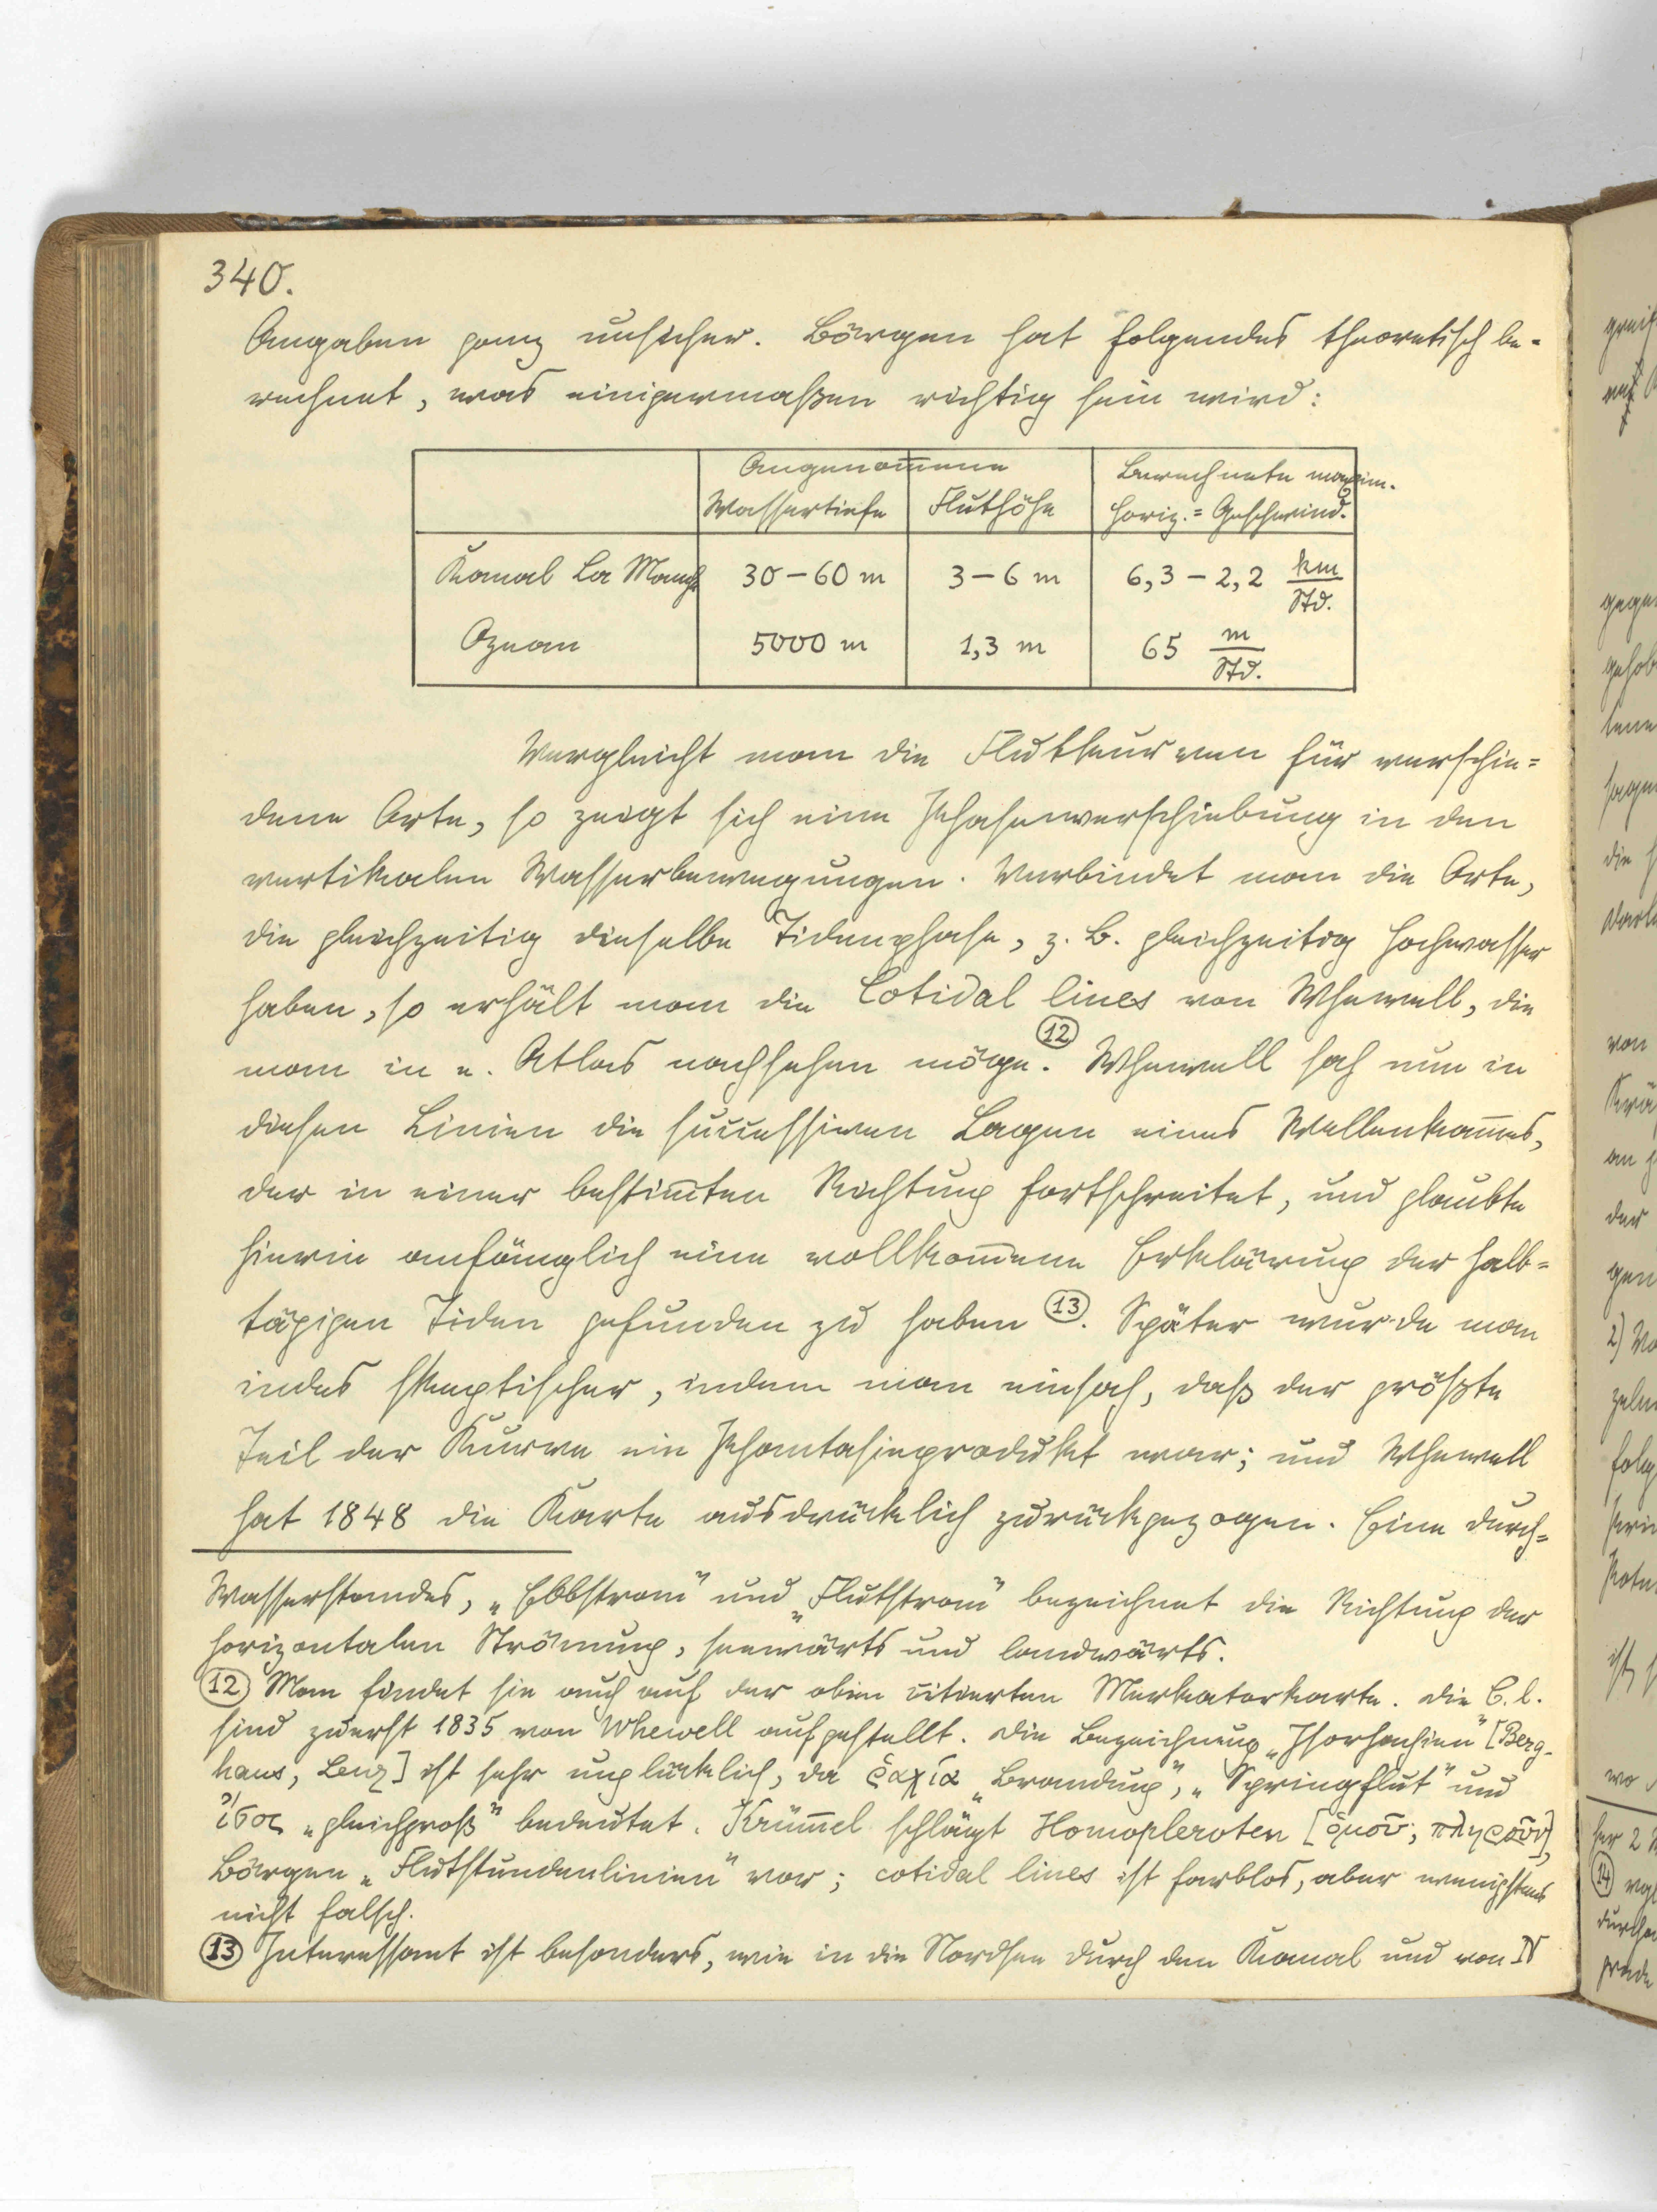 340.
Angaben ganz unsicher. Börgen hat folgendes theoretisch be-
rechnet, was einigermaßen richtig sein wird:
Angenom̅ene
Wassertiefe Fluthöhe
Berechnete maxim.
horiz.= Geschwind.
Kanal La Manche 30–60 m 3–6 m 6,3–2,2 km/Std.
Ozean 5000 m 1,3 m 65 m/Std.
Vergleicht man die Flutkurven für verschie=
dene Orte, so zeigt sich eine Phasenverschiebung in den
vertikalen Wasserbewegungen. Verbindet man die Orte,
die gleichzeitig dieselbe Tidenphase, z. B. gleichzeitig Hochwasser
haben, so erhält man die Cotidal lines von Whewell, die
man in e. Atlas nachsehen möge.⑫ Whewell sah nun in
diesen Linien die successiven Lagen eines Wellenkam̅es,
der in einer bestim̅ten Richtung fortschreitet, und glaubte
hierin anfänglich eine vollkom̅ene Erklärung der halb=
tägigen Tiden gefunden zu haben ⑬. Später wurde man
indes skeptischer, indem man einsah, daß der größte
Teil der Kurve ein Phantasieprodukt war; und Whewell
hat 1848 die Karte ausdrücklich zurückgezogen. Eine durch=
Wasserstandes, „Ebbstrom" und „Flutstrom" bezeichnet die Richtung der
horizontalen Strömung, seewärts und landwärts.
⑫ Man findet sie auch auf der oben citierten Merkatorkarte. Die C. l.
sind zuerst 1835 von Whewell aufgestellt. Die Bezeichnung „Isorhachien" [Berg-
haus, Lenz] ist sehr unglücklich, da ῥαχία „Brandung", „Springflut" und
ἴσος „gleichgroß" bedeutet. Krüm̅el schlägt Homopleroten [ὁμοῦ, πληροῦν],
Börgen „Flutstundenlinien" vor; cotidal lines ist farblos, aber wenigstens
nicht falsch.
⑬ Interessant ist besonders, wie in die Nordsee durch den Kanal und von N